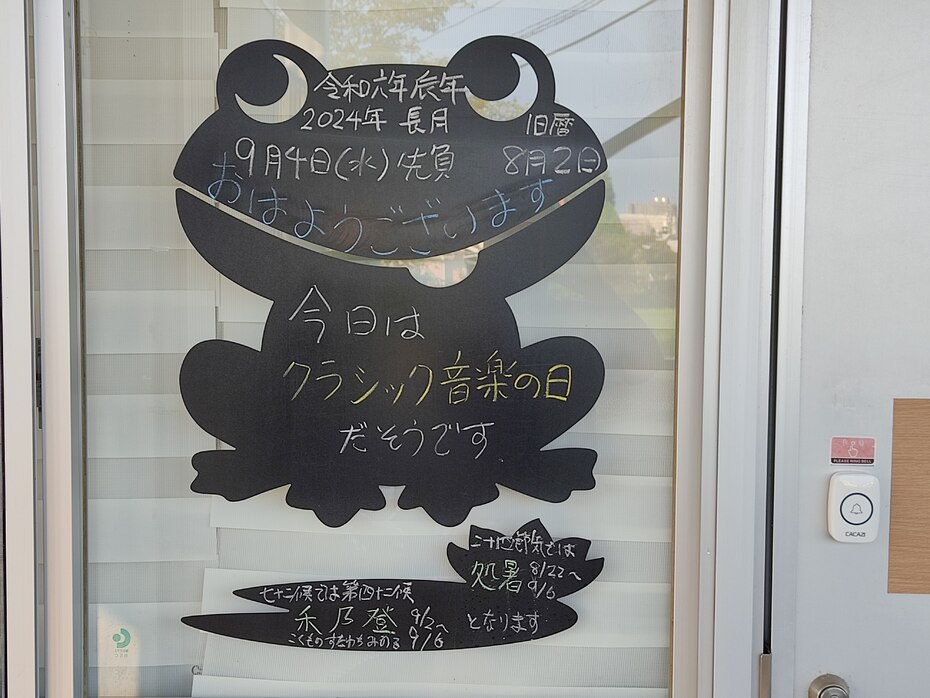 令和六年辰年
2024年 長月
旧暦
9月4日(水)先負
8月2日
おはようございます
今日は
クラシック音楽の日
だそうです
二十四節気では
処暑 8/22〜
9/6
となります
七十二候では第四十二候
禾乃登 9/2〜
こくものすなわちみのる 9/6
PLEASE RING BELL
CACAZI